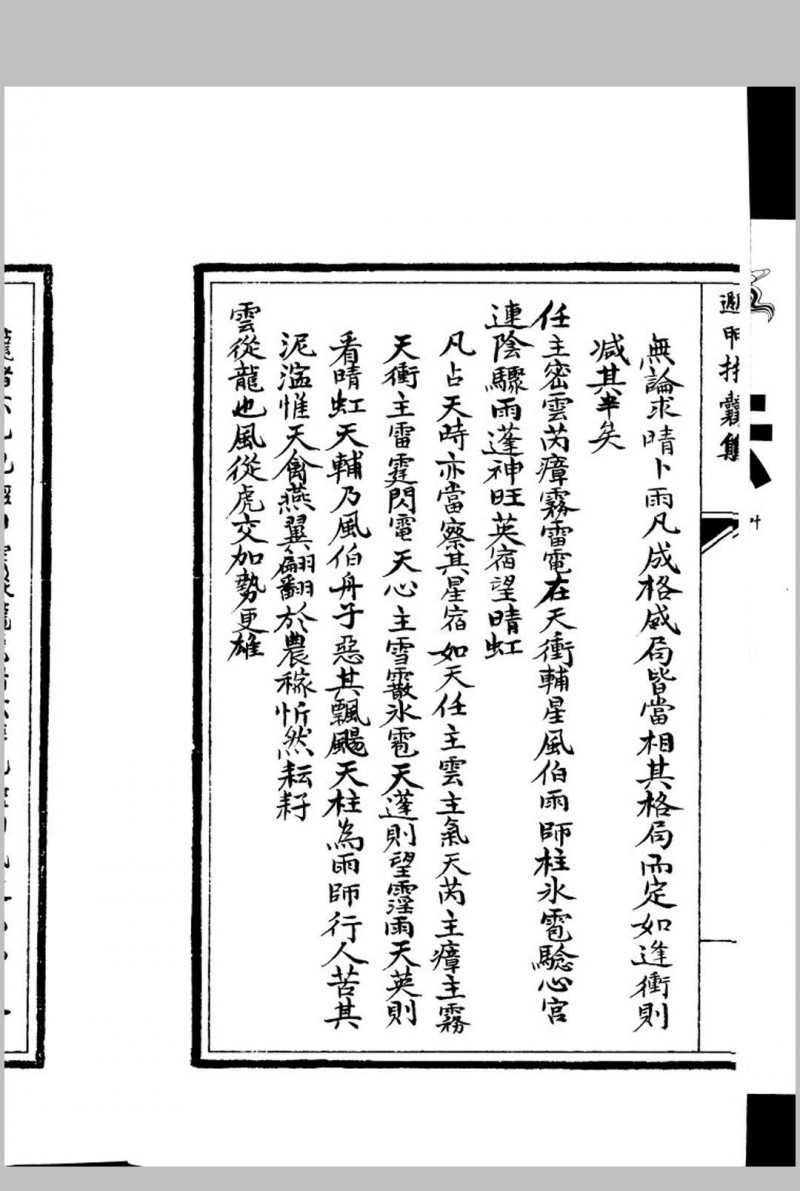 遁甲括囊集
無論求晴卜雨凡成格成局皆當相其格局而定如逢衝則
减其半矣
任主密雲芮瘴霧雷電在天衝輔星風伯雨師柱氷雹驗心宮
連陰驟雨蓬神旺英宿望晴虹
凡占天時亦當察其星宿如天任主雲主氣天芮主瘴主霧
天衝主雷霆閃電天心主雪霰氷雹天蓬則望霪雨天英則
看晴虹天輔乃風伯舟子惡其飄颺天柱為雨師行人苦其
泥濫惟天禽燕翼翩翻於農稼忻然耘耔
雲從龍也風從虎交加勢更雄